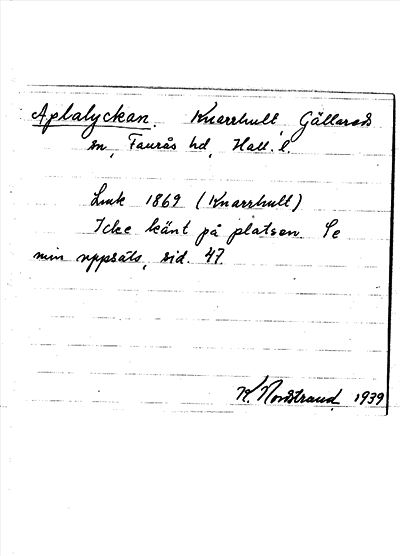 Aplalyckan. Knarrhult, Gällareds
sn, Faurås hd, Hall. l.
Lmk 1869 (Knarrhult)
Icke känt på platsen. Se
min uppsats, sid. 47
K. Nordstrand 1939